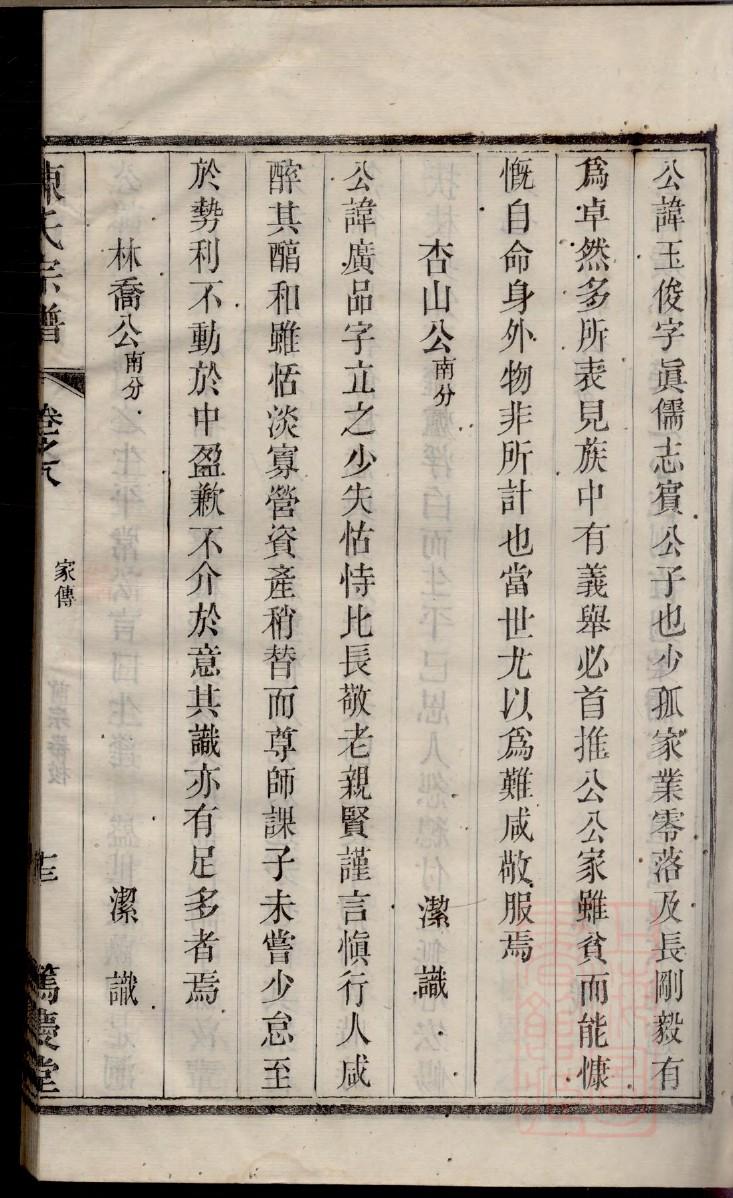 公諱玉俊字眞儒志賓公子也少孤家業零落及長剛毅有
爲卓然多所表見族中有義舉必首推公公家雖貧而能慷
慨自命身外物非所計也當世尤以爲難咸敬服焉
杏山公南分 潔識
公諱廣品字立之少失怙恃比長敬老親賢謹言愼行人咸
醉其醕和雖恬淡寡營資產稍替而尊師課子未嘗少怠至
於勢利不動於中盈歉不介於意其識亦有足多者焉
林喬公南分 潔識
陳氏宗譜 卷之八 家傳 十三 篤慶堂